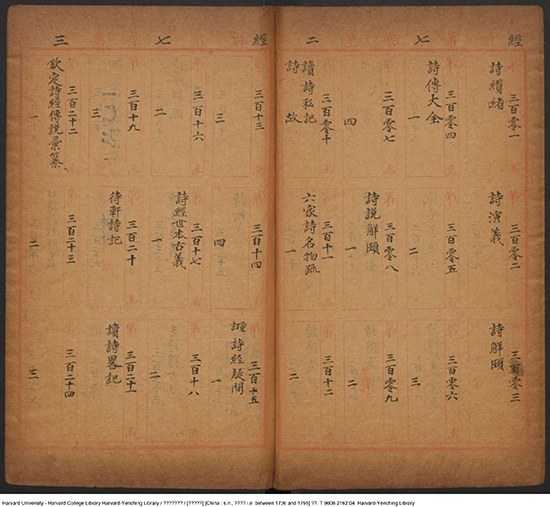 經 七 二
三百零一
詩纘緒
三百零四
詩傳大全
一
三百零七
四
三百零十
讀詩私記
詩故
三百零二
詩演義
三百零五
二
三百零八
詩說解頤
一
三百十一
六家詩名物疏
一
三百零三
詩解頤
三百零六
三
三百零九
二
三百十二
二
經 七 三
三百十三
三
三百十六
二
三百十九
三
三百二十二
欽定詩經傳說彙纂
一
三百十四
四
三百十七
詩經世本古義
一
三百二十
待軒詩記
三百二十三
二
三百十五
詩經疑問
一
三百十八
二
三百二十一
讀詩畧記
三百二十四
三
Harvard University - Harvard College Library Harvard-Yenching Library / ??????? / [?????] [China : s.n., ???? i.e. between 1736 and 1795] ??. T 9608 2162.04 Harvard-Yenching Library